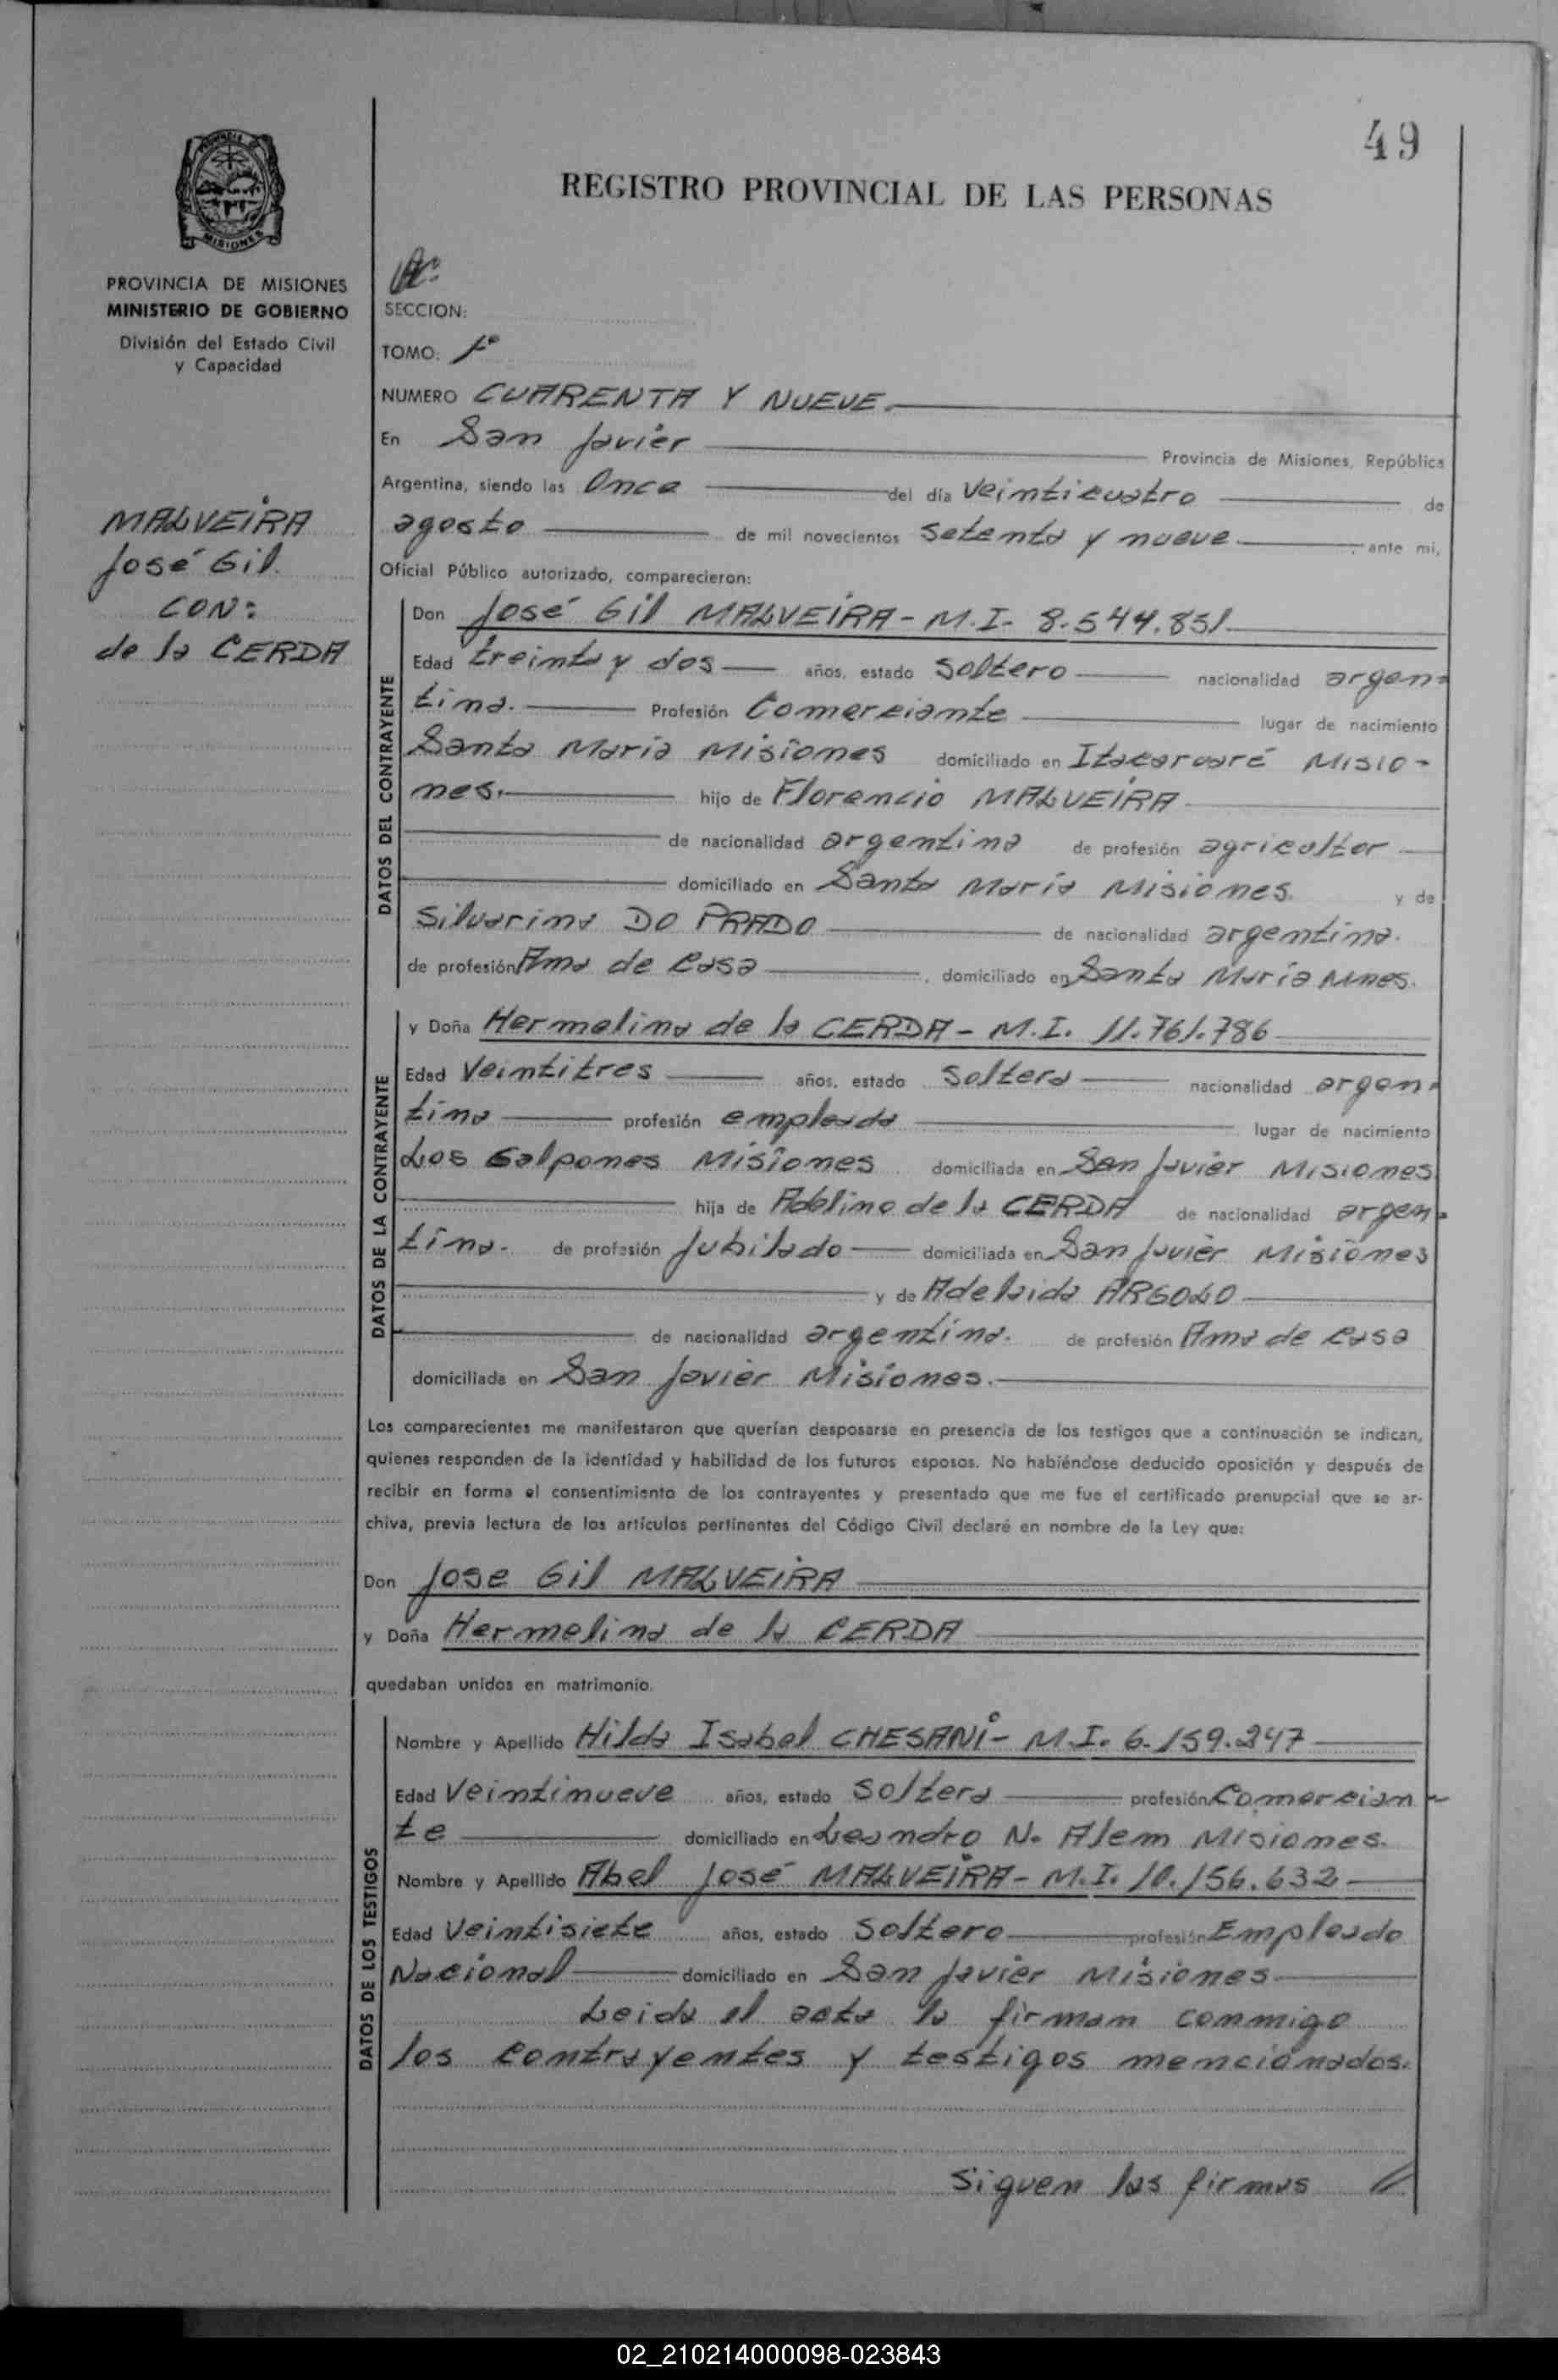 49
REGISTRO PROVINCIAL DE LAS PERSONAS
PROVINCIA DE
MISIONES
PROVINCIA DE MISIONES
MINISTERIO DE GOBIERNO
División del Estado Civil
y Capacidad
MALVEIRA
José Gil.
CON:
de la CERDA
SECCION:
TOMO: 1º
NUMERO CUARENTA Y NUEVE.
En San Javier Provincia de Misiones, República
Argentina, siendo las Once del día veinticuatro de
agosto de mil novecientos setenta y nueve , ante mi,
Oficial Público autorizado, comparecieron:
DATOS DEL CONTRAYENTE
Don José Gil MALVEIRA - M.I- 8.544.831
Edad treinta y dos años, estado soltero nacionalidad argen=
tina. Profesión Comerciante lugar de nacimiento
Santa María Misiones domiciliado en Itacaruaré Misio-
nes. hijo de Florencio MALVEIRA
de nacionalidad argentina de profesión agricultor
domiciliado en Santa María Misiones. y de
Silvarina DO PRADO de nacionalidad argentina.
de profesión Ama de Casa , domiciliado en Santa María Mnes.
DATOS DE LA CONTRAYENTE
y Doña Hermelina de la CERDA - M.I. 11.761.786
Edad Veintitres años, estado Soltera nacionalidad argen=
tina profesión empleada lugar de nacimiento
Los Galpones Misiones domiciliada en San Javier Misiones
hija de Adelino de la CERDA de nacionalidad argen=
tina. de profesión Jubilado domiciliada en San Javier Misiones
y de Adelaida ARGOLO
de nacionalidad argentina. de profesión Ama de Casa
domiciliada en San Javier Misiones.
Los comparecientes me manifestaron que querían desposarse en presencia de los testigos que a continuación se indican,
quienes responden de la identidad y habilidad de los futuros esposos. No habiéndose deducido oposición y después de
recibir en forma el consentimiento de los contrayentes y presentado que me fue el certificado prenupcial que se ar-
chiva, previa lectura de los artículos pertinentes del Código Civil declaré en nombre de la Ley que:
Don Jose Gil MALVEIRA
y Doña Hermelina de la CERDA
quedaban unidos en matrimonio.
DATOS DE LOS TESTIGOS
Nombre y Apellido Hilda Isabel CHESANI - M.I. 6.159.247
Edad Veintinueve años, estado Soltera profesión Comercian-
te domiciliado en Leandro N. Alem Misiones.
Nombre y Apellido Abel José MALVEIRA - M.I. 10.156.632
Edad Veintisiete años, estado Soltero profesión Empleado
Nacional domiciliado en San Javier Misiones
Leida el acta la firman conmigo
los contrayentes y testigos mencionados.
Siguen las firmas //
02_210214000098-023843